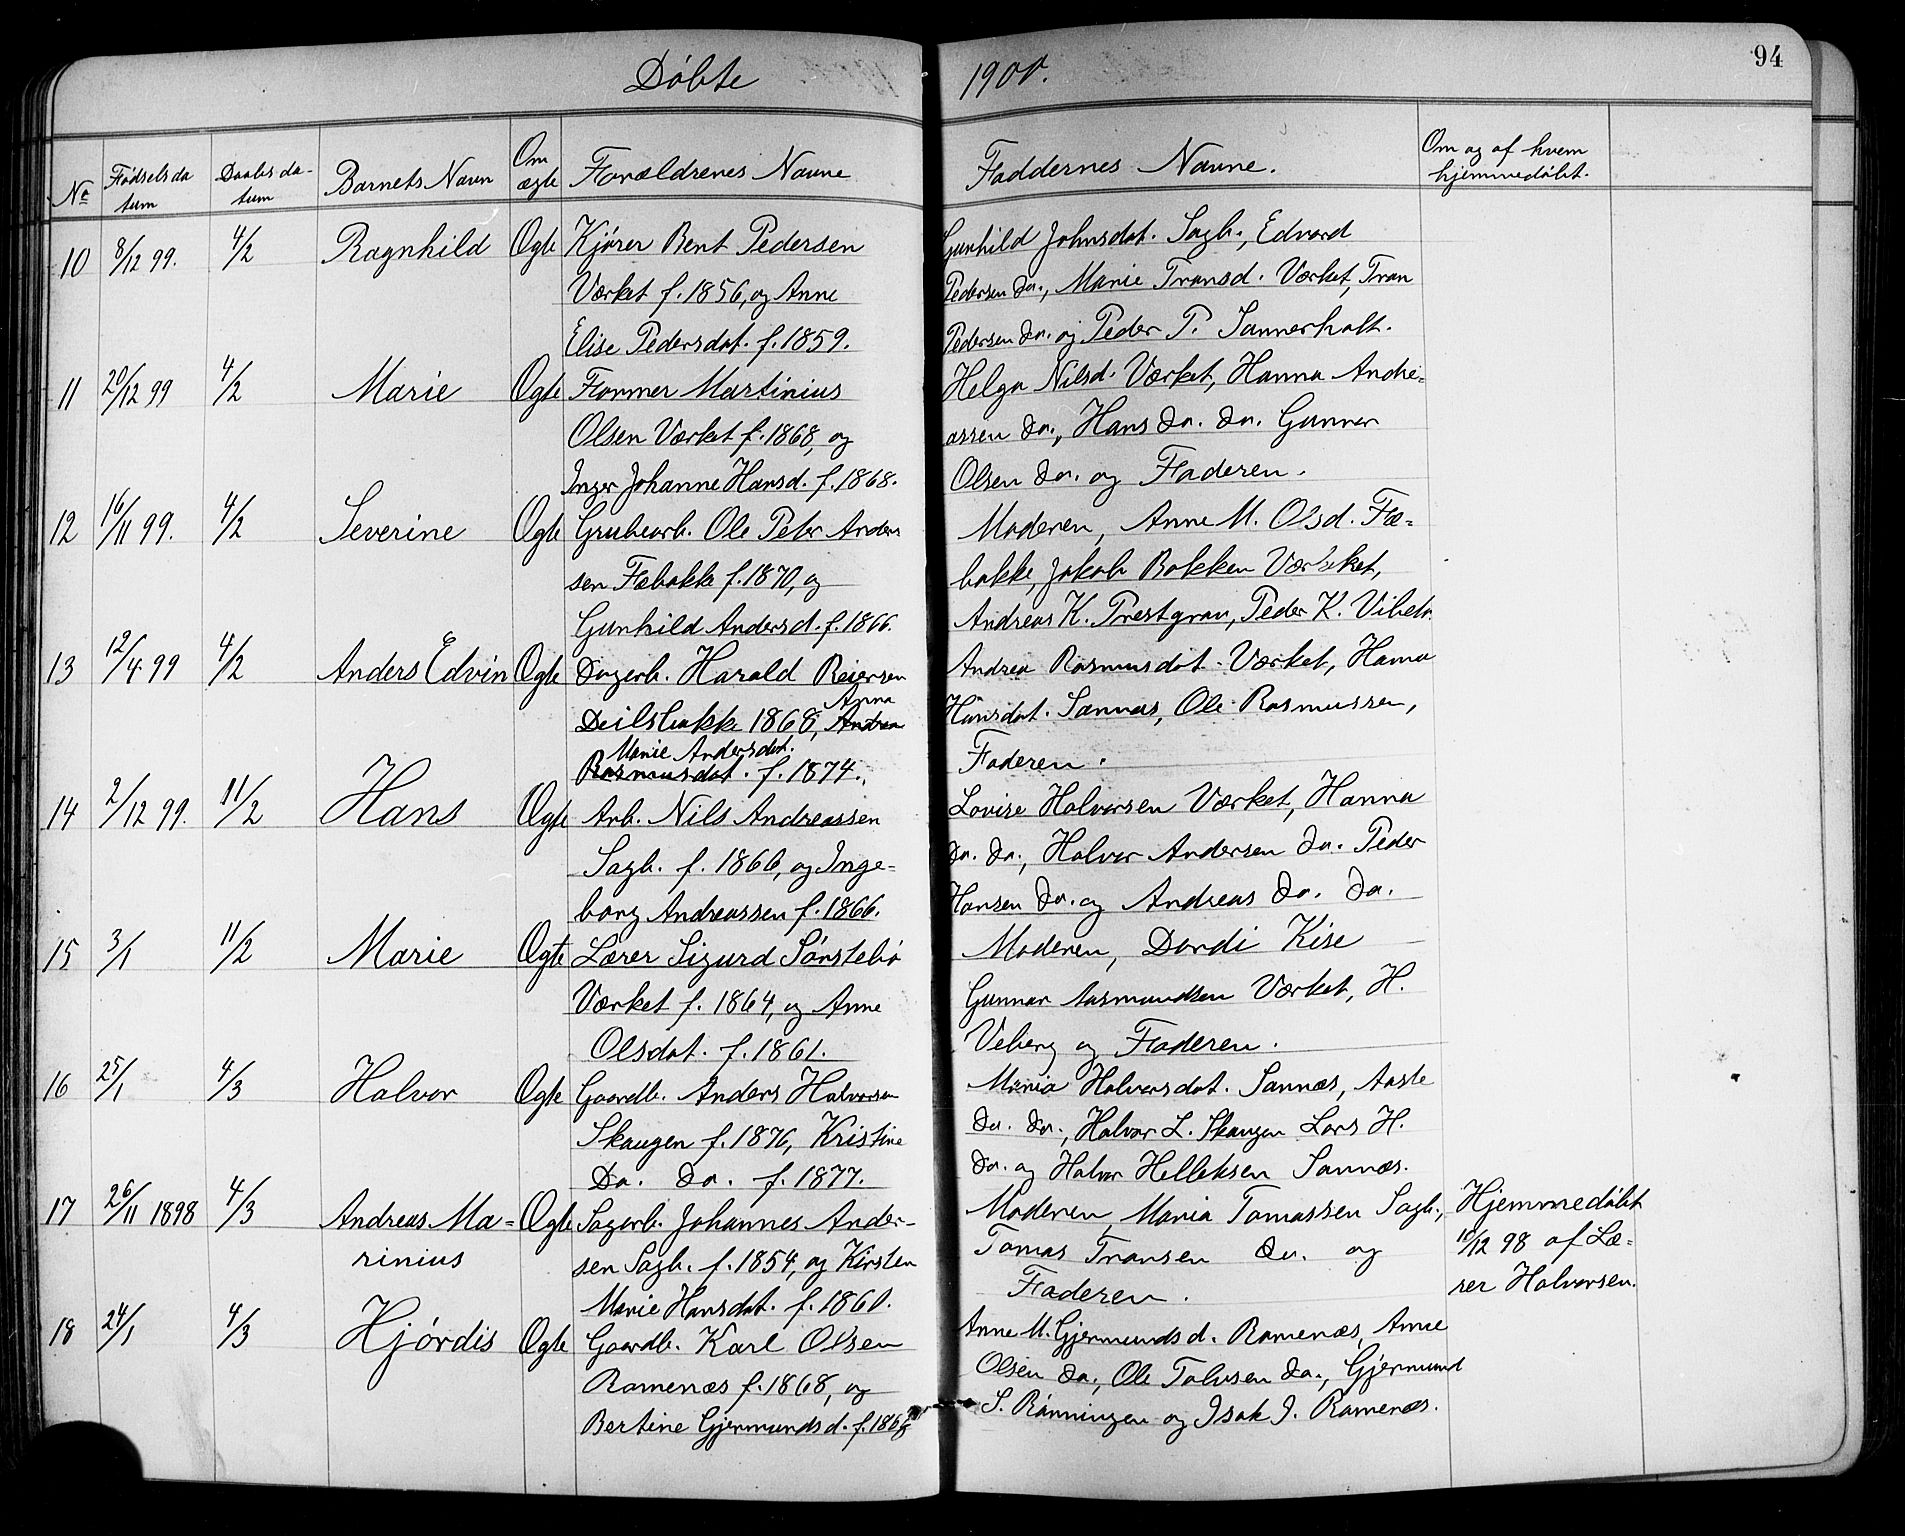 94
Döbte 1900.
No Fødselsda tum Daabs da- tum Barnets Navn Om ægte Forældrenes Navne Faddernes Navne. Om og af hvem hjemmedøbt.
10 8/12 99. 4/2 Ragnhild Ogte Kjører Bent Pedersen
Værket f. 1856, og Anne
Elise Pedersdat. f. 1859.
Gunhild Johnsdat. Sagb., Edvard
Pedersen Do., Marie Transd. Værket, Tran
Pedersen Do. og Peder P. Sannerholt.
11 20/12 99 4/2 Marie Ogte Former Martinius
Olsen Værket f. 1868, og
Inger Johanne Hansd. f. 1868.
Helga Nilsd. Værket, Hanna Andre-
assen Do., Hans Do. Do. Gunner
Olsen Do. og Faderen.
12 16/11 99. 4/2 Severine Ogte Grubearb. Ole Peter Anders
sen Fæbakke f. 1870, og
Gunhild Andersd. f. 1866.
Moderen, Anne M. Olsd. Fæ-
bakke, Jakob Bakken Værket,
Andreas K. Prestgrav, Peder K. Vibeto.
13 12/4 99 4/2 Anders Edvin Ogte Dagarb. Harald Reiersen
Anna
Deilsbakk 1868, Andrea
Marie Andersdat.
Rasmusdat. f. 1874.
Andrea Rasmusdat. Værket, Hanna
Hansdat. Sannæs, Ole Rasmussen,
Faderen.
14 2/12 99. 11/2 Hans Ogte Arb. Nils Andreassen
Sagb. f. 1866, og Inge-
borg Andreassen f. 1866.
Lovise Halvorsen Værket, Hanna
Do. Do., Halvor Andersen Do. Peder
Hansen Do. og Andreas Do. Do.
15 3/1 11/2 Marie Ogte Lærer Sigurd Sørstebö
Værket f. 1864, og Anne
Olsdat. f. 1861.
Moderen, Dordi Kise
Gunnar Aasmundsen Værket, H.
Veberg og Faderen.
16 25/1 4/3 Halvor Ogte Gaardb. Anders Halvorsen
Skaugen f. 1876, Kristine
Do. Do. f. 1877.
Maria Halvorsdat. Sannæs, Aaste
Do. Do., Halvor L. Skaugen Lars H.
Do. og Halvor Helleksen Sannæs.
17 26/11 1898 4/3 Andreas Ma- Ogte Sagarb. Johannes Ander-
rinius sen Sagb. f. 1854, og Kirsten
Marie Hansdat. f. 1860.
Moderen, Maria Tomassen Sagb.,
Tomas Transen Do. og
Faderen.
Hjemmedøbt
10/12 98 af Læ-
rer Halvorsen.
18 24/1 4/3 Hjördis Ogte Gaardb. Karl Olsen
Ramenæs f. 1868, og
Bertine Gjermundsd. f. 1868
Anne M. Gjermundsd. Ramenæs, Anne
Olsen Do., Ole Talvsen Do., Gjermund
S. Rönningen og Isak I. Ramenæs.